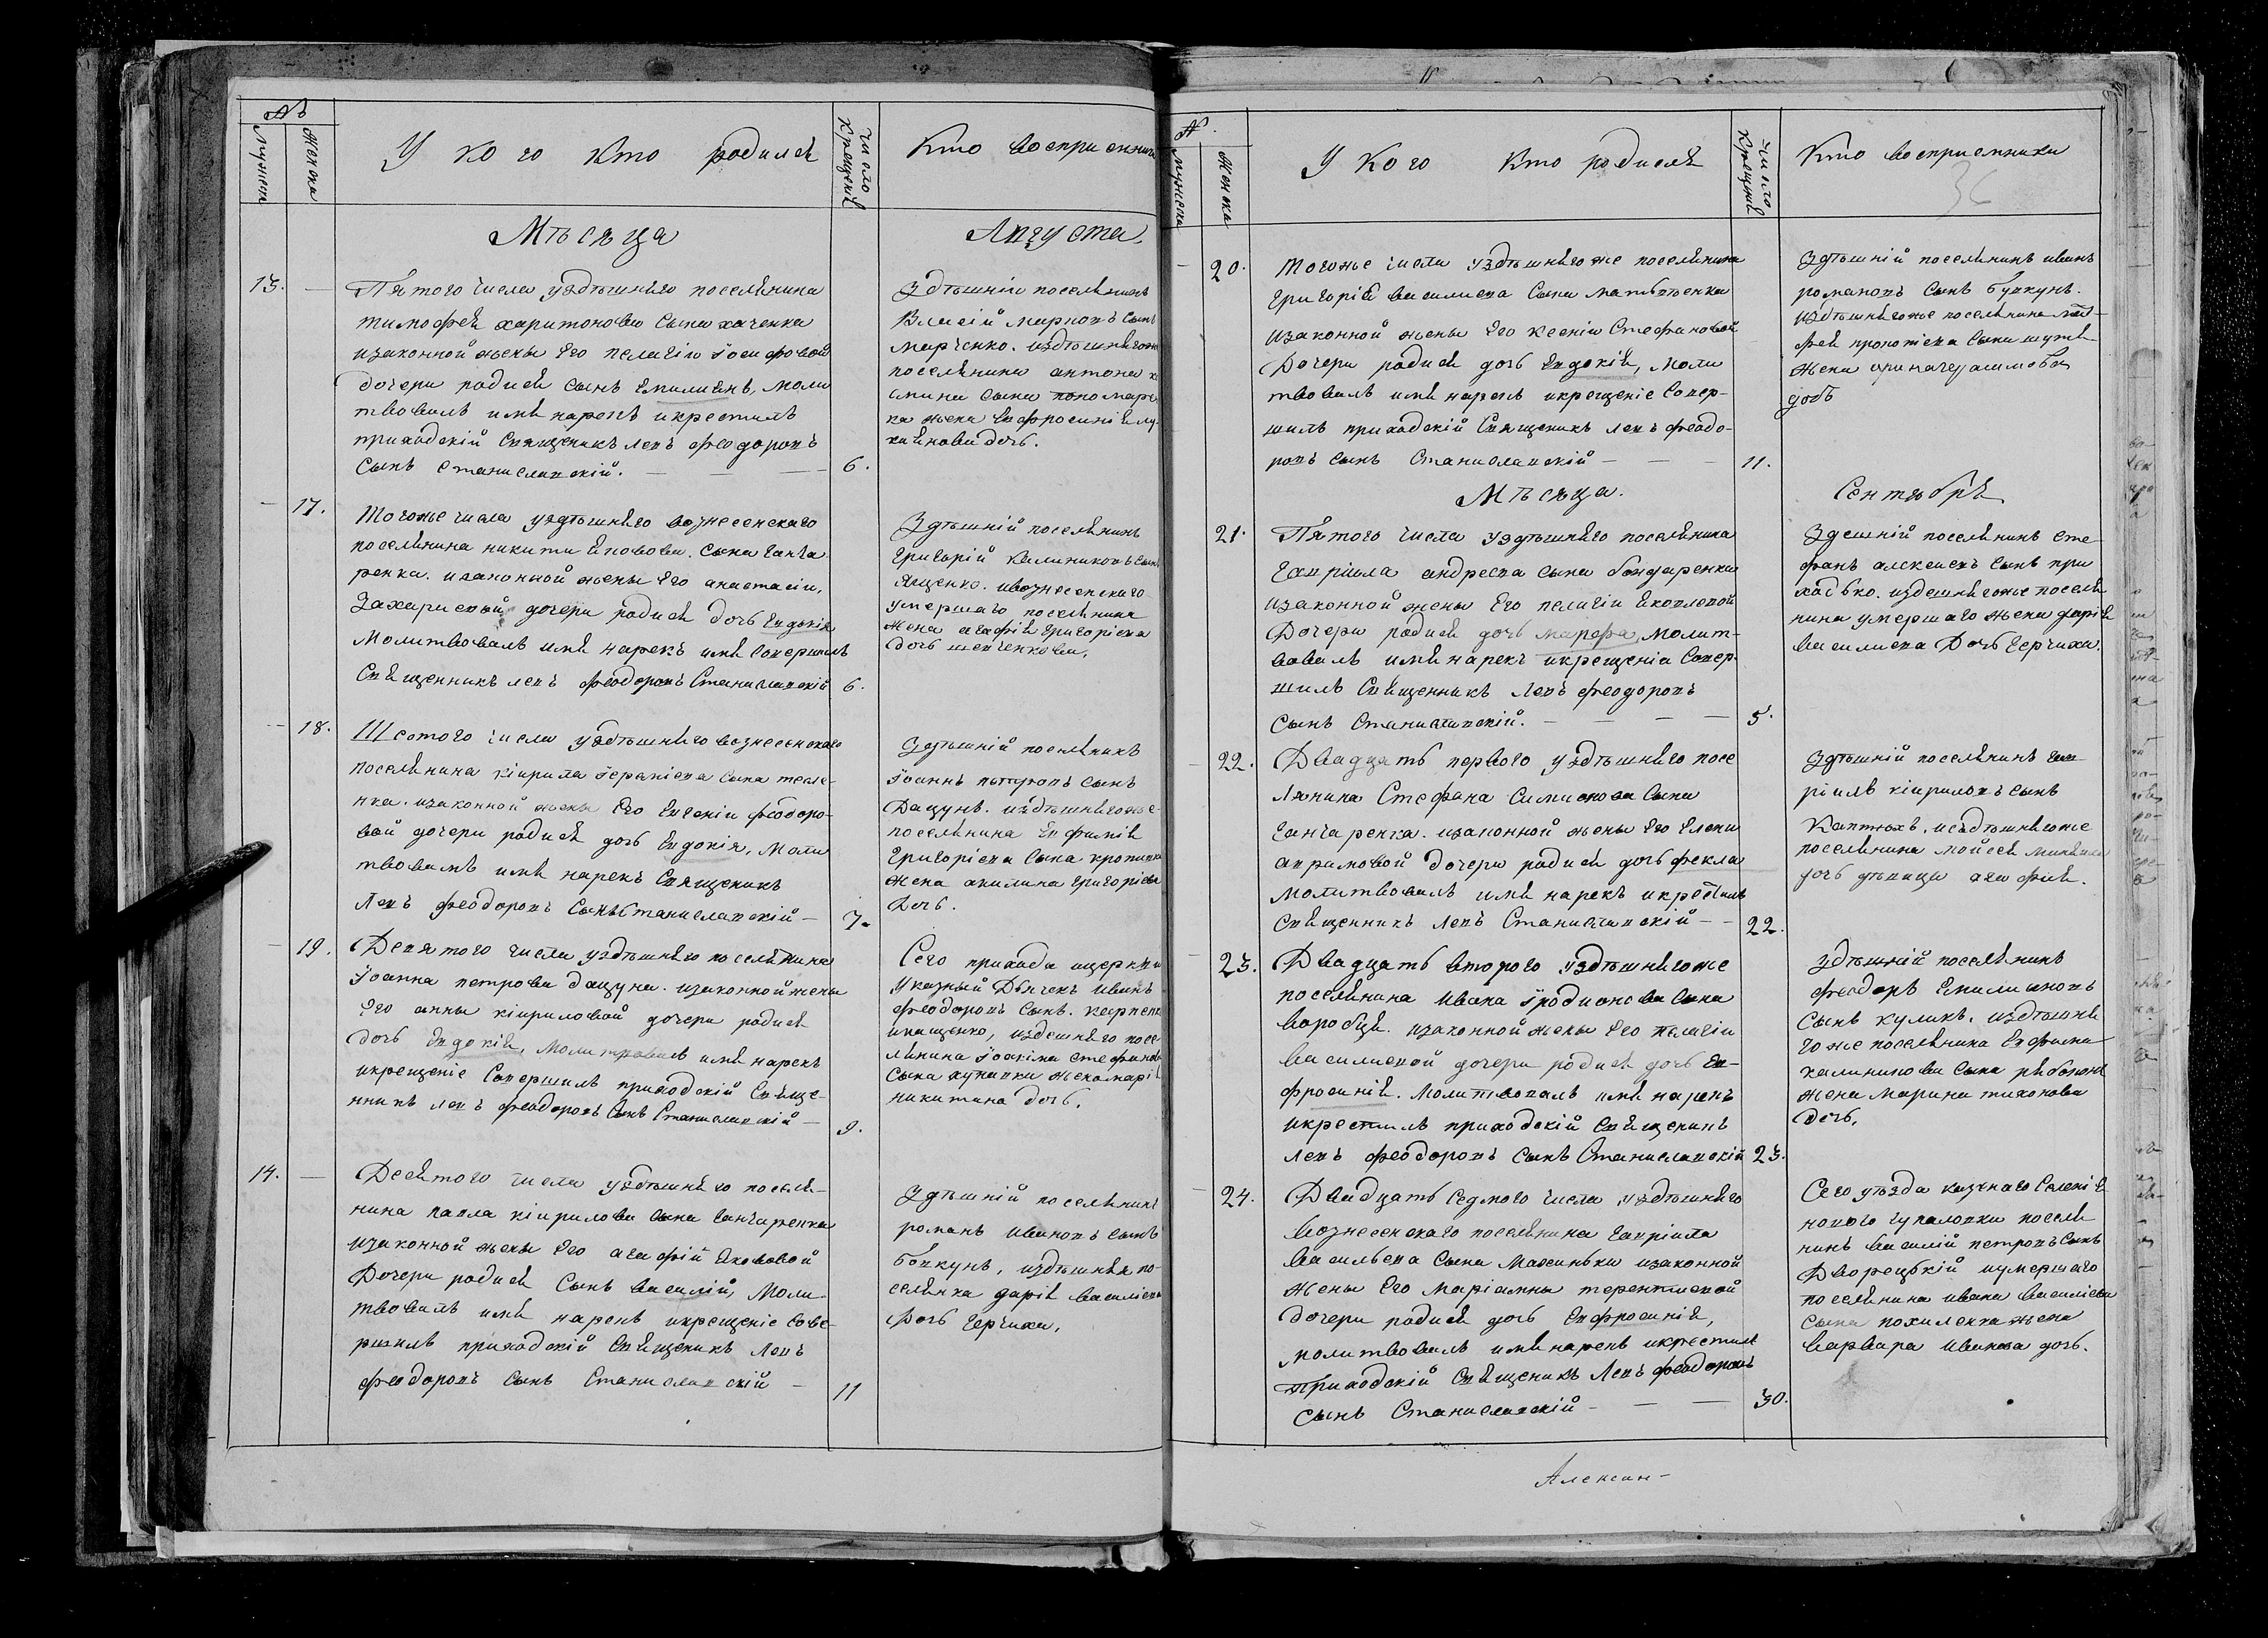 №
Мужеска
Женска
У кого кто родился
число крещения
Кто восприемники
Мѣсяца
Августа.
13.
Пятого числа уздѣшнѣго поселянина
тимофея харитонова сына ххченка
изаконной жены его пелагіи іосифовой
дочери родися сынъ Емилиянъ, моли
твовалъ имя нарекъ икрестилъ
приходскій Священикъ левъ феодоровъ
сынъ Станиславскій.
6.
Здѣшній поселянинъ
Власій марковъ сынъ
марченко. издѣшнягоже
поселянина антона
сына пономаре
ка жена Евфросинія лу
каянова дочь.
17.
Тогожъе числа уздѣшнѣго вознесенскаго
поселянина никити Яковова. сына ганча
ренка. изаконной жены его анастасіи,
Захариевой дочери родися дочь Евдокія
Молитвовалъ имя нарекъ имя Совершилъ
Священникъ левъ феодоровъ Станиславскій
6.
Здѣшній поселянинъ
Григорій Калиниковъ сынъ
Ященко. ивознесенскаго
умершаго поселянина
жена агафія григоріева
дочь шевченкова.
18.
Шестого числа уздѣшнѣго вознесенскаго
поселянина кіирила
нка. изаконной жены его Евгеніи феодоро-
вой дочери родися дочь Евдокія, Моли
твовалъ имя нарекъ Священикъ
Левъ феодоровъ Сынъ Станиславскій
7.
Здѣшній поселянинъ
Іоаннъ петровъ сынъ
Дацунъ. издѣшнягоже
поселянина Евфимія
Григоріева сына
жена акилина григоріева
дочь.
19.
Девятого числа уздѣшнѣго поселянина
Іоанна петрова дацуна. изаконной жены
его анны кіириловой дочери родися
дочь Евдокія, молитвовалъ имя нарекъ
икрещеніе Совершилъ приходскій Свяще-
нникъ левъ феодоровъ Сынъ Станиславскій
9.
Сего прихода ицеркви
указный Дячекъ иванъ
феодоровъ сынъ.
иващенко, издешнего посе-
лянина Іоакима стефанова
сына жена марія
никитина дочь.
14.
Десятого числа уздѣшнѣго поселя-
нина павла кіирилова сына ганчаренка
изаконной жены его агафій Яковвовой
Дочери родися Сынъ василій, Моли
твовалъ имя нарекъ икрещеніе сове-
ршилъ приходскій Священикъ Левъ
феодоровъ сынъ Станиславскій
11
Здѣшній поселянинъ
романъ ивановъ сынъ
Бовкунъ, издѣшняя по-
селянка дарія василіева
дочь Герчиха,
№.
Мужеска
Женска
У кого кто родися
число крещения
Кто восприемники
36
20.
Тогожъе числа уздѣшнѣгоже поселянина
Григорія василиева Сына матвѣенка
изаконной жены его ксеніи Стефановой
Дочери родися дочь Евдокія, Моли
твовалъ имя нарекъ икрещеніе Совер-
шилъ приходскій Священикъ левъ феодо-
ровъ сынъ Станиславскій
11.
Здѣшній поселянинъ иванъ
романовъ сынъ бувкунъ.
издѣшнягоже поселянина мат-
фея прокопіева сына
жена
дочь
Мѣсяца.
Сентября
21.
Пятого числа уздѣшнѣго поселянина
гавріила андреева сына бондаренка
изаконной жены его пелагіи Яковлевой
Дочери родися дочь марѳа, молит-
вовалъ имя нарекъ икрещенія Совер-
шилъ Священникъ левъ феодоровъ
сынъ Станиславскій.
5.
Здешній поселянинъ сте
фанъ алексиевъ сынъ при
ходько. издешнягоже поселя
нина умершаго жена дарія
василиева Дочь Герчиха.
22.
Двадцать первого уздѣшнѣго посе
лянина Стефана Симионова Сына
ганчаренка. изаконной жены его Елени
аврамовой дочери родися дочь фекла
молитвовалъ имя нарекъ икрестилъ
священникъ левъ Станиславскій
22.
Здѣшній поселянинъ гав
ріилъ кіириловъ сынъ
Ковтюхъ. издѣшнягоже
поселянина мойсея
дочь дѣвица агафия.
23.
Двадцать второго уздѣшнягоже
поселянина Ивана Іродионова сына
воробця. изаконной жены его пелагіи
василиевой дочери родися дочь Ев-
фросинія. Молитвовалъ имя нарекъ
икрестилъ приходскій Священикъ
левъ феодоровъ сынъ Станиславскій
23.
Здѣшній поселянинъ
феодоръ Емилияновъ
Сынъ куликъ. издѣшня
гоже поселянина Евфима
калиникова сына
жена марина тихонова
дочь.
24.
Двадцать седмого числа уздѣшнѣго
вознесенскаго поселянина гавріила
васильева сына Махинька изаконной
жены его Маріамны терентиевой
дочери родися дочь Евфросинія,
молитвовалъ имя нарекъ икрестилъ
Приходскій Священикъ Левъ феодоровъ
сынъ Станиславскій
30.
Сего уѣзда казенаго Селенія
нового чупаловки поселя
нинъ василій петровъ сынъ
Дворецькій иумершаго
поселянина ивана василиева
сына похиленка жена
варвара иванова дочь.
Алексан-